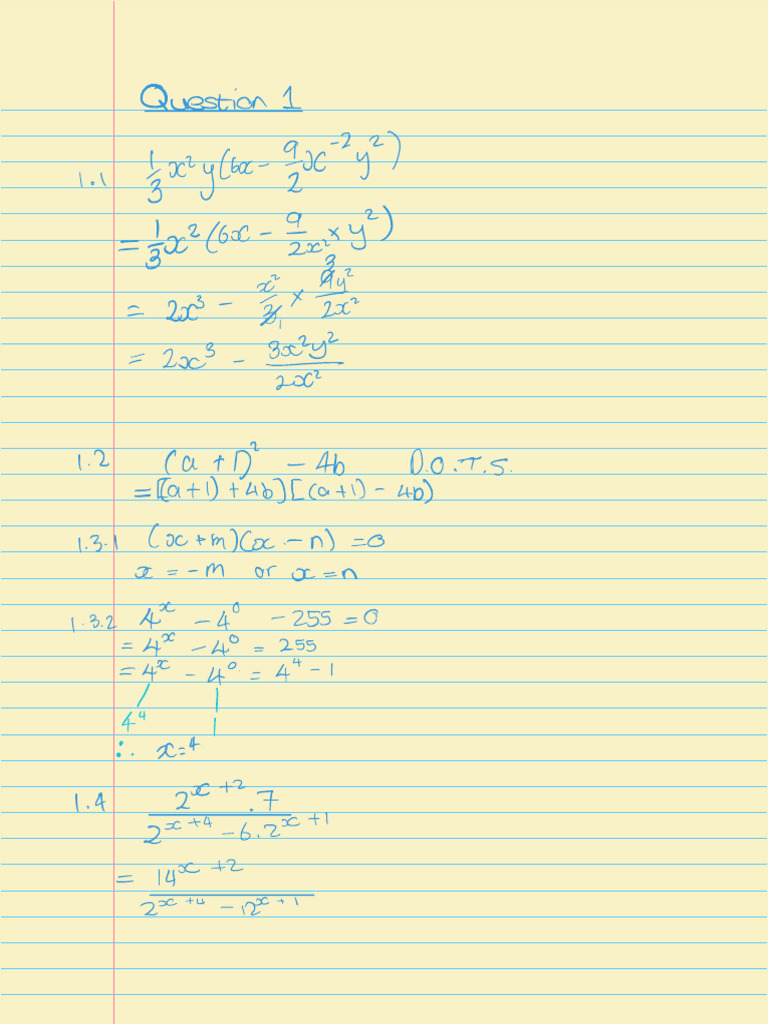 Question 1
1.1 1/3 x²y(6x - 9/2 x⁻² y²)
= 1/3 x² (6x - 9/2x² × y²)
= 2x³ - x²/3 1 × 3 9y²/2x²
= 2x³ - 3x²y²/2x²
1.2 (a + 1)² - 4b D.O.T.S.
= [(a+1) + 4b][(a+1) - 4b)
1.3.1 (x + m)(x - n) = 0
x = -m or x = n
1.3.2 4ˣ - 4⁰ - 255 = 0
= 4ˣ - 4⁰ = 255
= 4ˣ - 4⁰ = 4⁴ - 1
4⁴ 1
∴ x = 4
1.4 2ˣ⁺² . 7
2ˣ⁺⁴ - 6.2ˣ⁺¹
= 14ˣ⁺²
2ˣ⁺⁴ - 12ˣ⁺¹